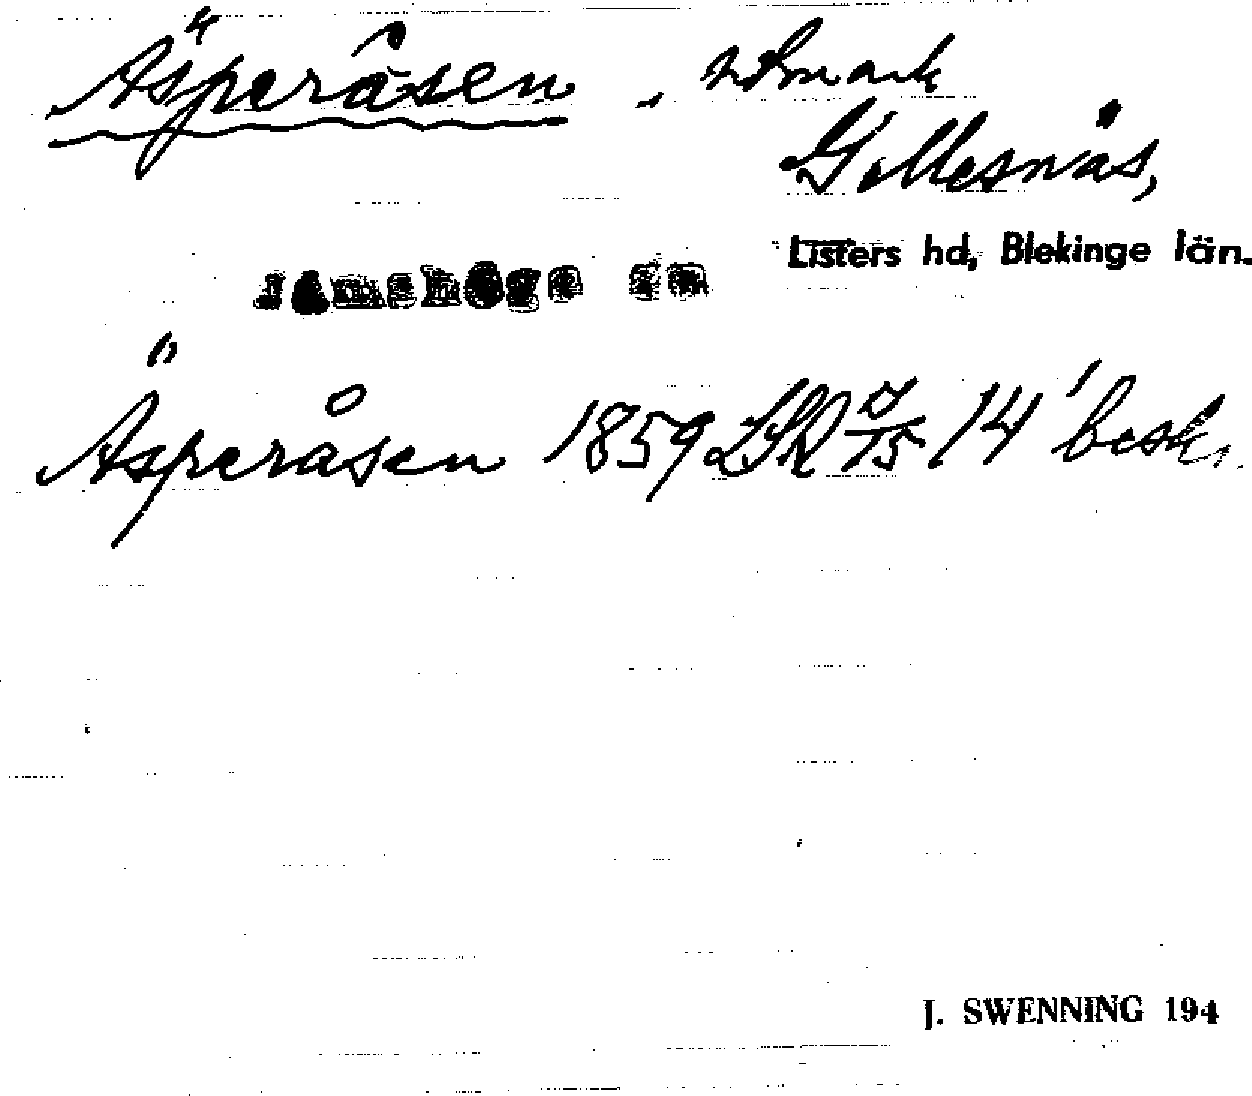 Äsperåsen, utmark
Gillesnäs,
Listers hd, Blekinge län.
Jämshögs sn
Äsperåsen 1859 LSA 7/15 14' beskr.
J. SWENNING 194